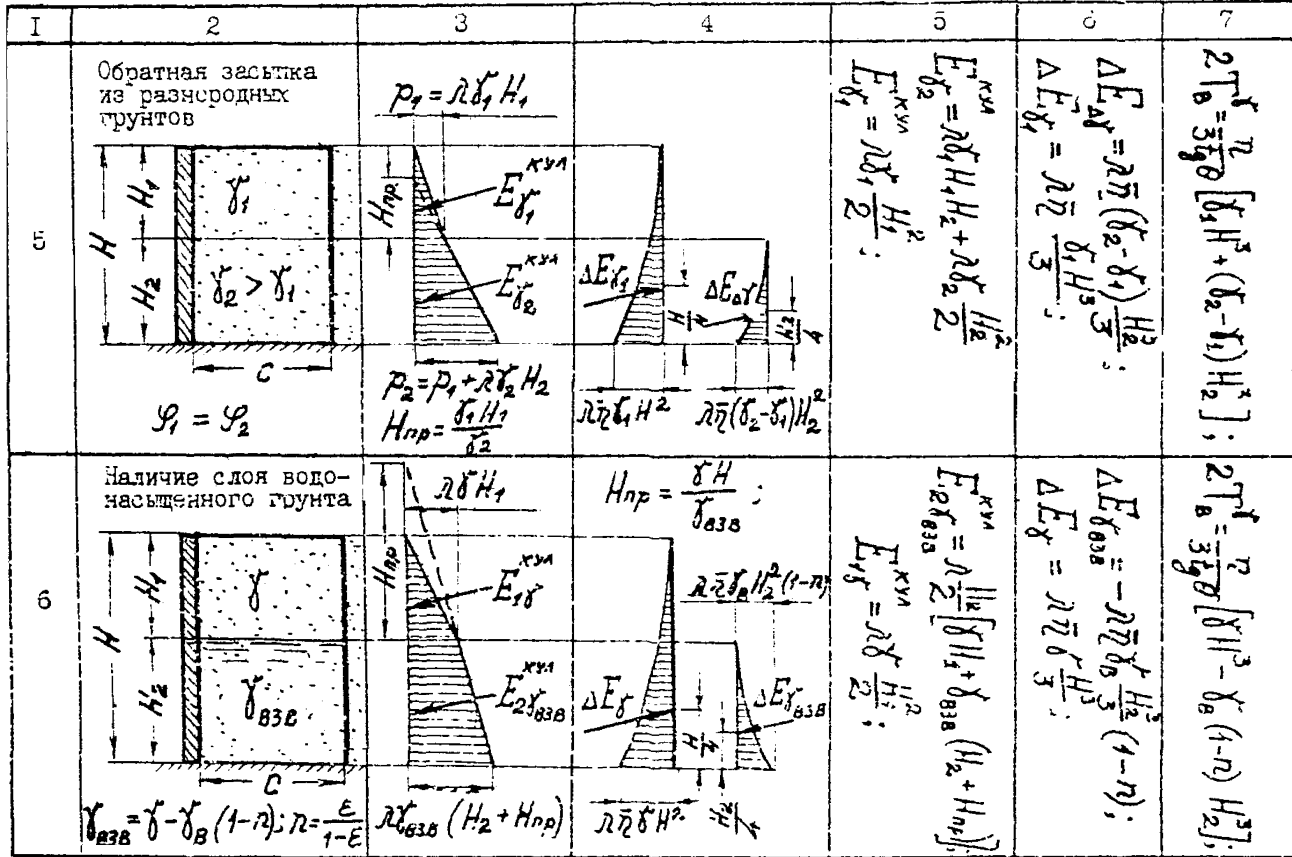 I 2 3 4 5 6 7
5
Обратная засыпка
из разнородных
грунтов
H
H₁
H₂
γ₁
γ₂ > γ₁
C
φ₁ = φ₂
p₁ = λγ₁H₁
Hпр
Eγ₁ᵏʸᴧ
Eγ₂ᵏʸᴧ
p₂ = p₁ + λγ₂H₂
Hпр = γ₁H₁/γ₂
ΔEγ₁
H/4
ΔEΔγ
H₂/4
λη̄γ₁H²
λη̄(γ₂-γ₁)H₂²
Eγ₁ᵏʸᴧ = λγ₁ H₁²/2;
Eγ₂ᵏʸᴧ = λγ₁H₁H₂ + λγ₂ H₂²/2
ΔEγ₁ = λη̄ γ₁H³/3;
ΔEΔγ = λη̄(γ₂-γ₁) H₂³/3;
2Tᵧв = η/3tgθ [γ₁H³ + (γ₂-γ₁)H₂³];
6
Наличие слоя водо-
насыщенного грунта
H
H₁
H₂
γ
γвзв
C
γвзв = γ - γв(1-n); n = ε/1-ε
λγH₁
Hпр
E₁γᵏʸᴧ
E₂γвзвᵏʸᴧ
λγвзв(H₂ + Hпр)
Hпр = γH/γвзв;
λη̄γвH₂²(1-n)
ΔEγ
ΔEγвзв
H/4
H₂/4
λη̄γH²
E₁γᵏʸᴧ = λγ H₁²/2;
E₂γвзвᵏʸᴧ = λ H₂/2 [γH₁ + γвзв(H₂ + Hпр)];
ΔEγ = λη̄ γH³/3;
ΔEγвзв = -λη̄γв H₂³/3 (1-n);
2Tᵧв = η/3tgθ [γH³ - γв(1-n)H₂³];